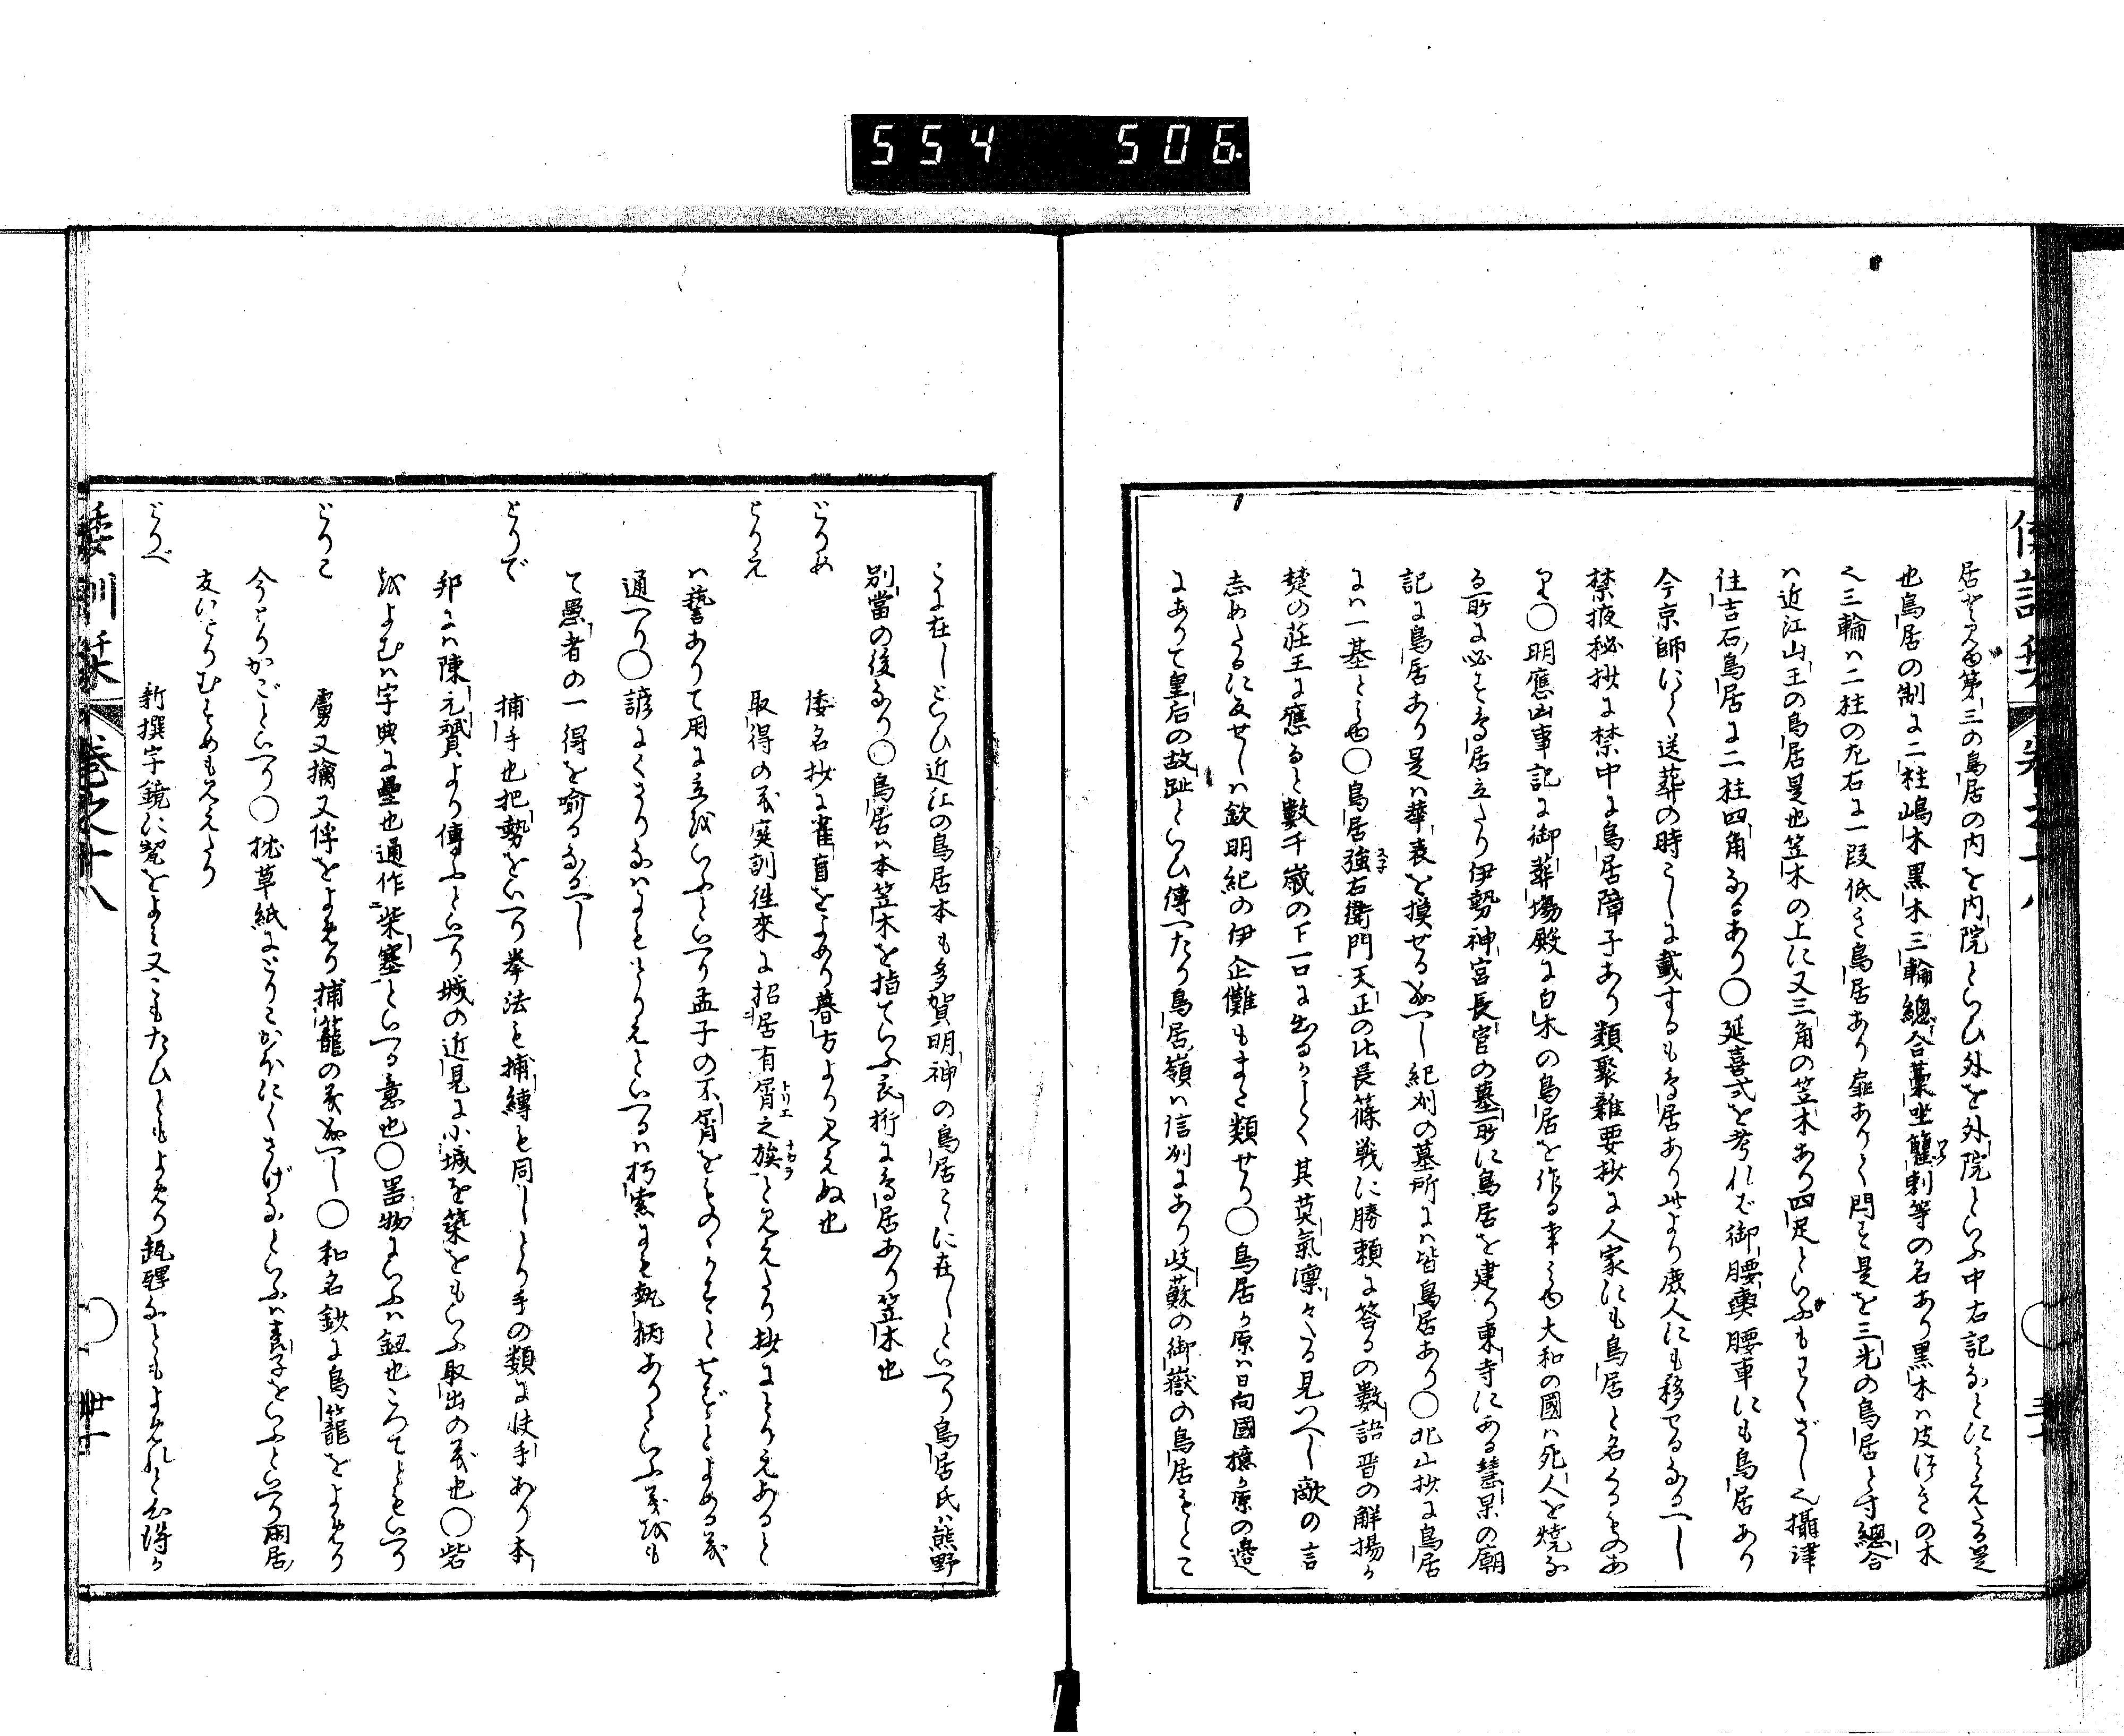 554 506.
居せり又第三の鳥居の内を内院といひ外を外院といふ中右記なとにみえたる是
也鳥居の制に二柱嶋木黒木三輪總合藁坐龓刺等の名あり黒木ハ皮つきの木
也三輪ハ二柱の左右に一段低き鳥居あり扉ありて閇す是を三光の鳥居と寸總合
ハ近江山王の鳥居是也笠木の上に又三角の笠木あり四足といふもわくざし也攝津
住吉石鳥居に二柱四角なるあり〇延喜式を考れば御腰輿腰車にも鳥居あり
今京師にて送葬の時こしに載するも鳥居あり此より庶人にも移せるなるへし
禁掖秘抄に禁中に鳥居障子あり類聚雜要抄に人家にも鳥居と名くるものあ
り〇明應凶事記に御葬塲殿に白木の鳥居を作る事みゆ大和の國ハ死人を燒な
る所に必す鳥居立たり伊勢神宮長官の墓所に鳥居を建り東寺にある慧果の廟
記に鳥居あり是ハ華表を摸せる成へし紀州の墓所にハ皆鳥居あり〇北山抄に鳥居
にハ一基とみゆ〇鳥居強右衛門天正の比長篠戰に勝頼に答るの數語晋の解揚か
楚の莊王に應ると數千歳の下一口に出るかことく其英氣凛々たる見つへし敵の言
志めたるに反せしハ欽明紀の伊企儺もまた類せり〇鳥居か原ハ日向國檍か原の邉
にありて皇后の故趾といひ傳へたり鳥居嶺ハ信州にあり岐蘇の御嶽の鳥居もとこ
こに在しといひ近江の鳥居本も多賀明神の鳥居ここに在しといへり鳥居氏ハ熊野
別當の後なり〇鳥居ハ本笠木を指ていふ衣桁に鳥居あり笠木也
とりめ 倭名抄に雀盲をよめり暮方より見えぬ也
とりえ 取得の義庭訓徃來に招居有屑之族と見えたり抄にとりえあると
ハ藝ありて用に立をいふといへり孟子の不屑をものゝかすとせずとよめる義
通へり〇諺にくさりなはにもとりえといへるハ朽索にも執柄ありといふ義をも
て愚者の一得を喩るなるへし
とりで 捕手也把勢をいへり拳法も捕縛も同しとり手の類に伎手あり本
邦にハ陳元贇より傳ふといへり城の近見に小城を築をもいふ取出の義也〇砦
をよむハ字典に壘也通作柴塞といへる意也〇器物にいふハ釼也ころてともいへり
とりこ 虜又擒又俘をよめり捕籠の義成へし〇和名鈔に鳥籠をよめり
今とりかごといへり〇枕草紙にとりこかほにくさげなといふハ養子をいふといへり閑居
友にとりむすめも見えたり
とりべ 新撰字鏡に㼽をよみ又こもたひともよめり瓺瓼なともよめれと心得か
倭訓栞 巻之十八
〇 丗一